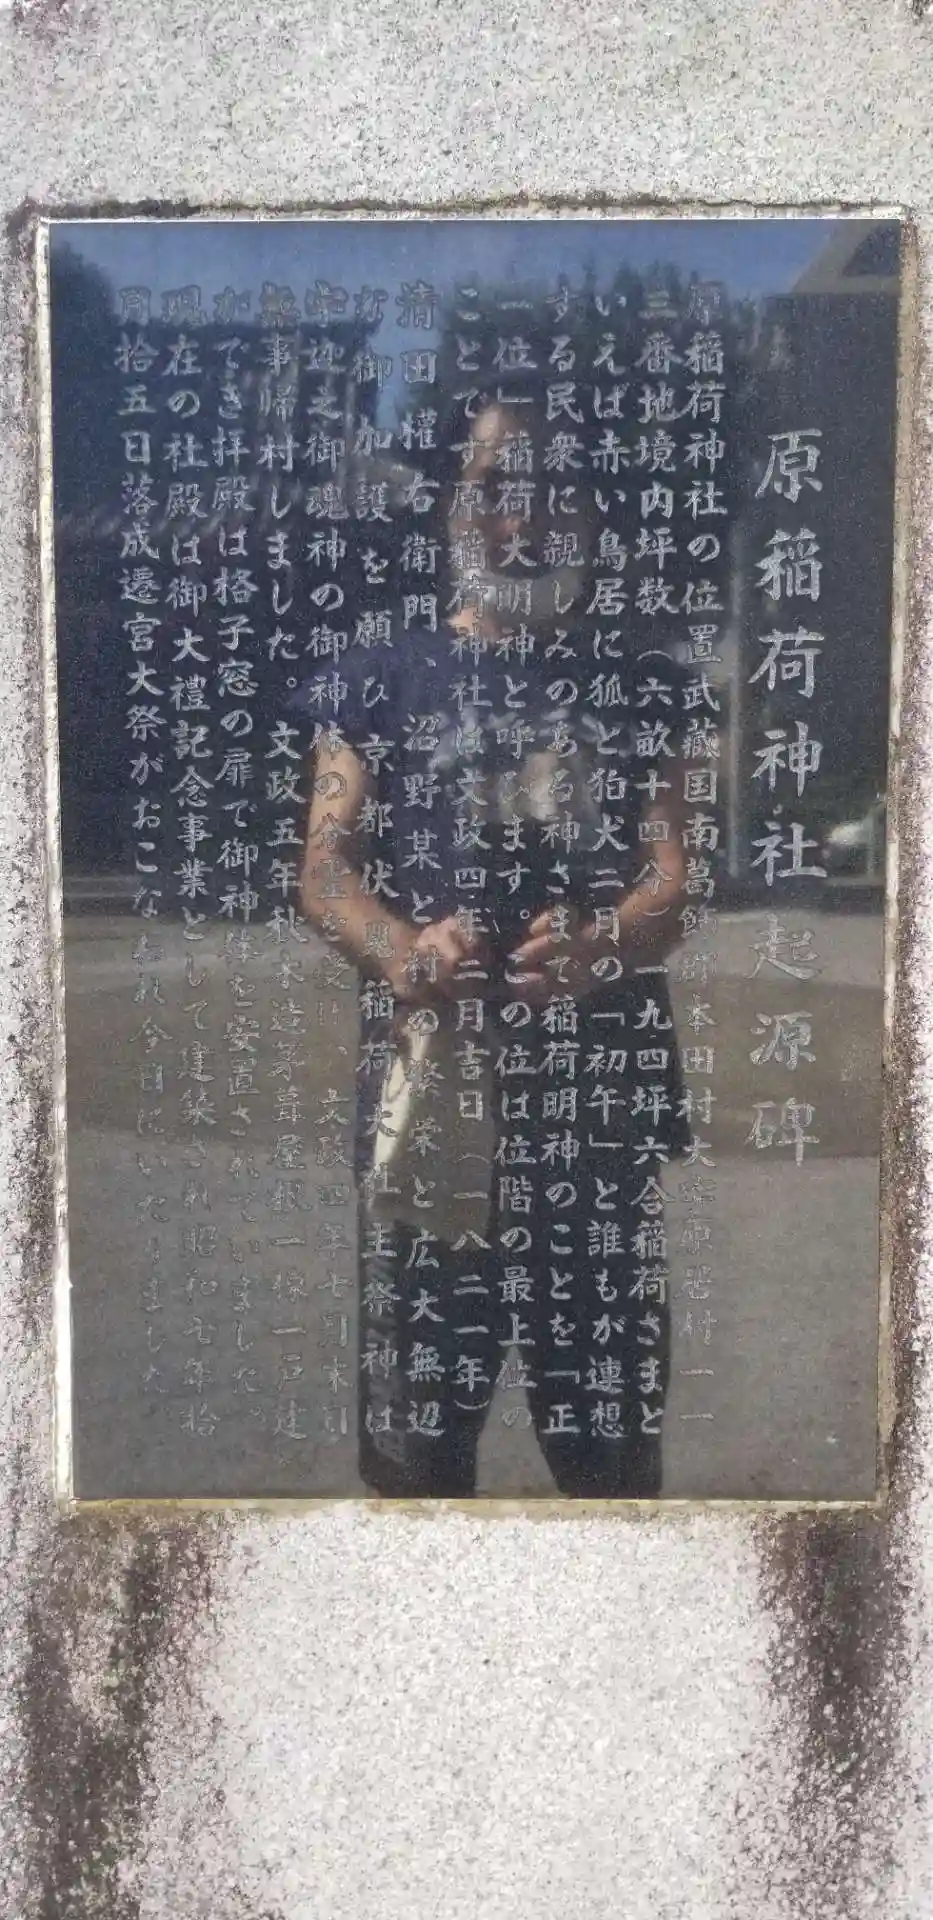 原稲荷神社起源碑
原稲荷神社の位置武蔵国南葛飾郡本田村大字原耄村一一
三番地境内坪数(六畝十四分)一九四坪六合稲荷さまと
いえば赤い鳥居に狐と狛犬二月の「初午」と誰もが連想
する民衆に親しみのある神さまで稲荷明神のことを「正
一位」稲荷大明神と呼びます。この位は位階の最上位の
ことです原稲荷神社は文政四年二月吉日(一八二一年)
清田權右衛門、沼野某と村の繁栄と広大無辺
な御加護を願ひ京都伏見稲荷大社主祭神は
宇迦之御魂神の御神体の分霊を受け、文政四年七月末日
無事帰村しました。文政五年秋木造茅葺屋根一棟一戸建
ができ拝殿は格子窓の扉で御神体を安置されていました。
現在の社殿は御大禮記念事業として建築され昭和七年拾
月拾五日落成遷宮大祭がおこなわれ今日にいたりました